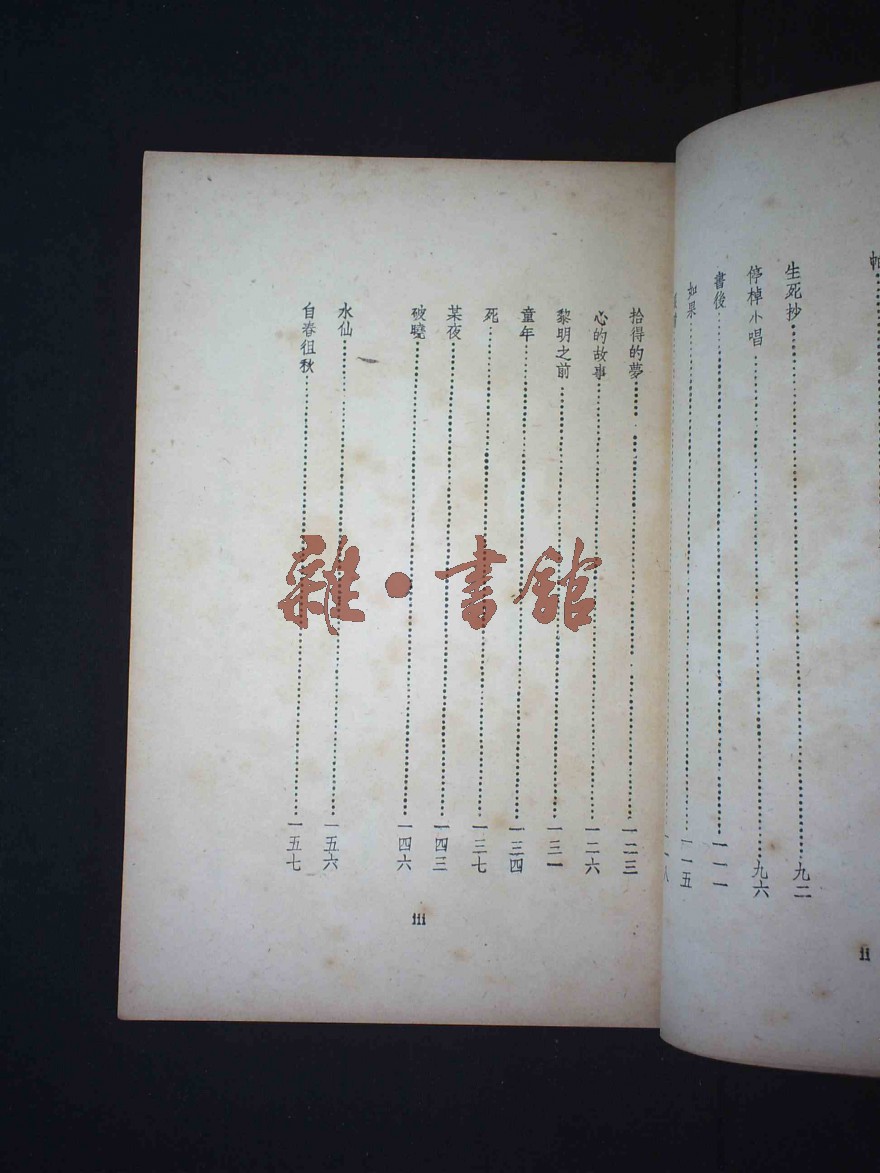 生死抄……九二
停棹小唱……九六
書後……一一一
如果……一一五
ii
拾得的夢……一二三
心的故事……一二六
黎明之前……一三一
童年……一三四
死……一三七
某夜……一四三
破曉……一四六
水仙……一五六
自春徂秋……一五七
iii
雜·書館